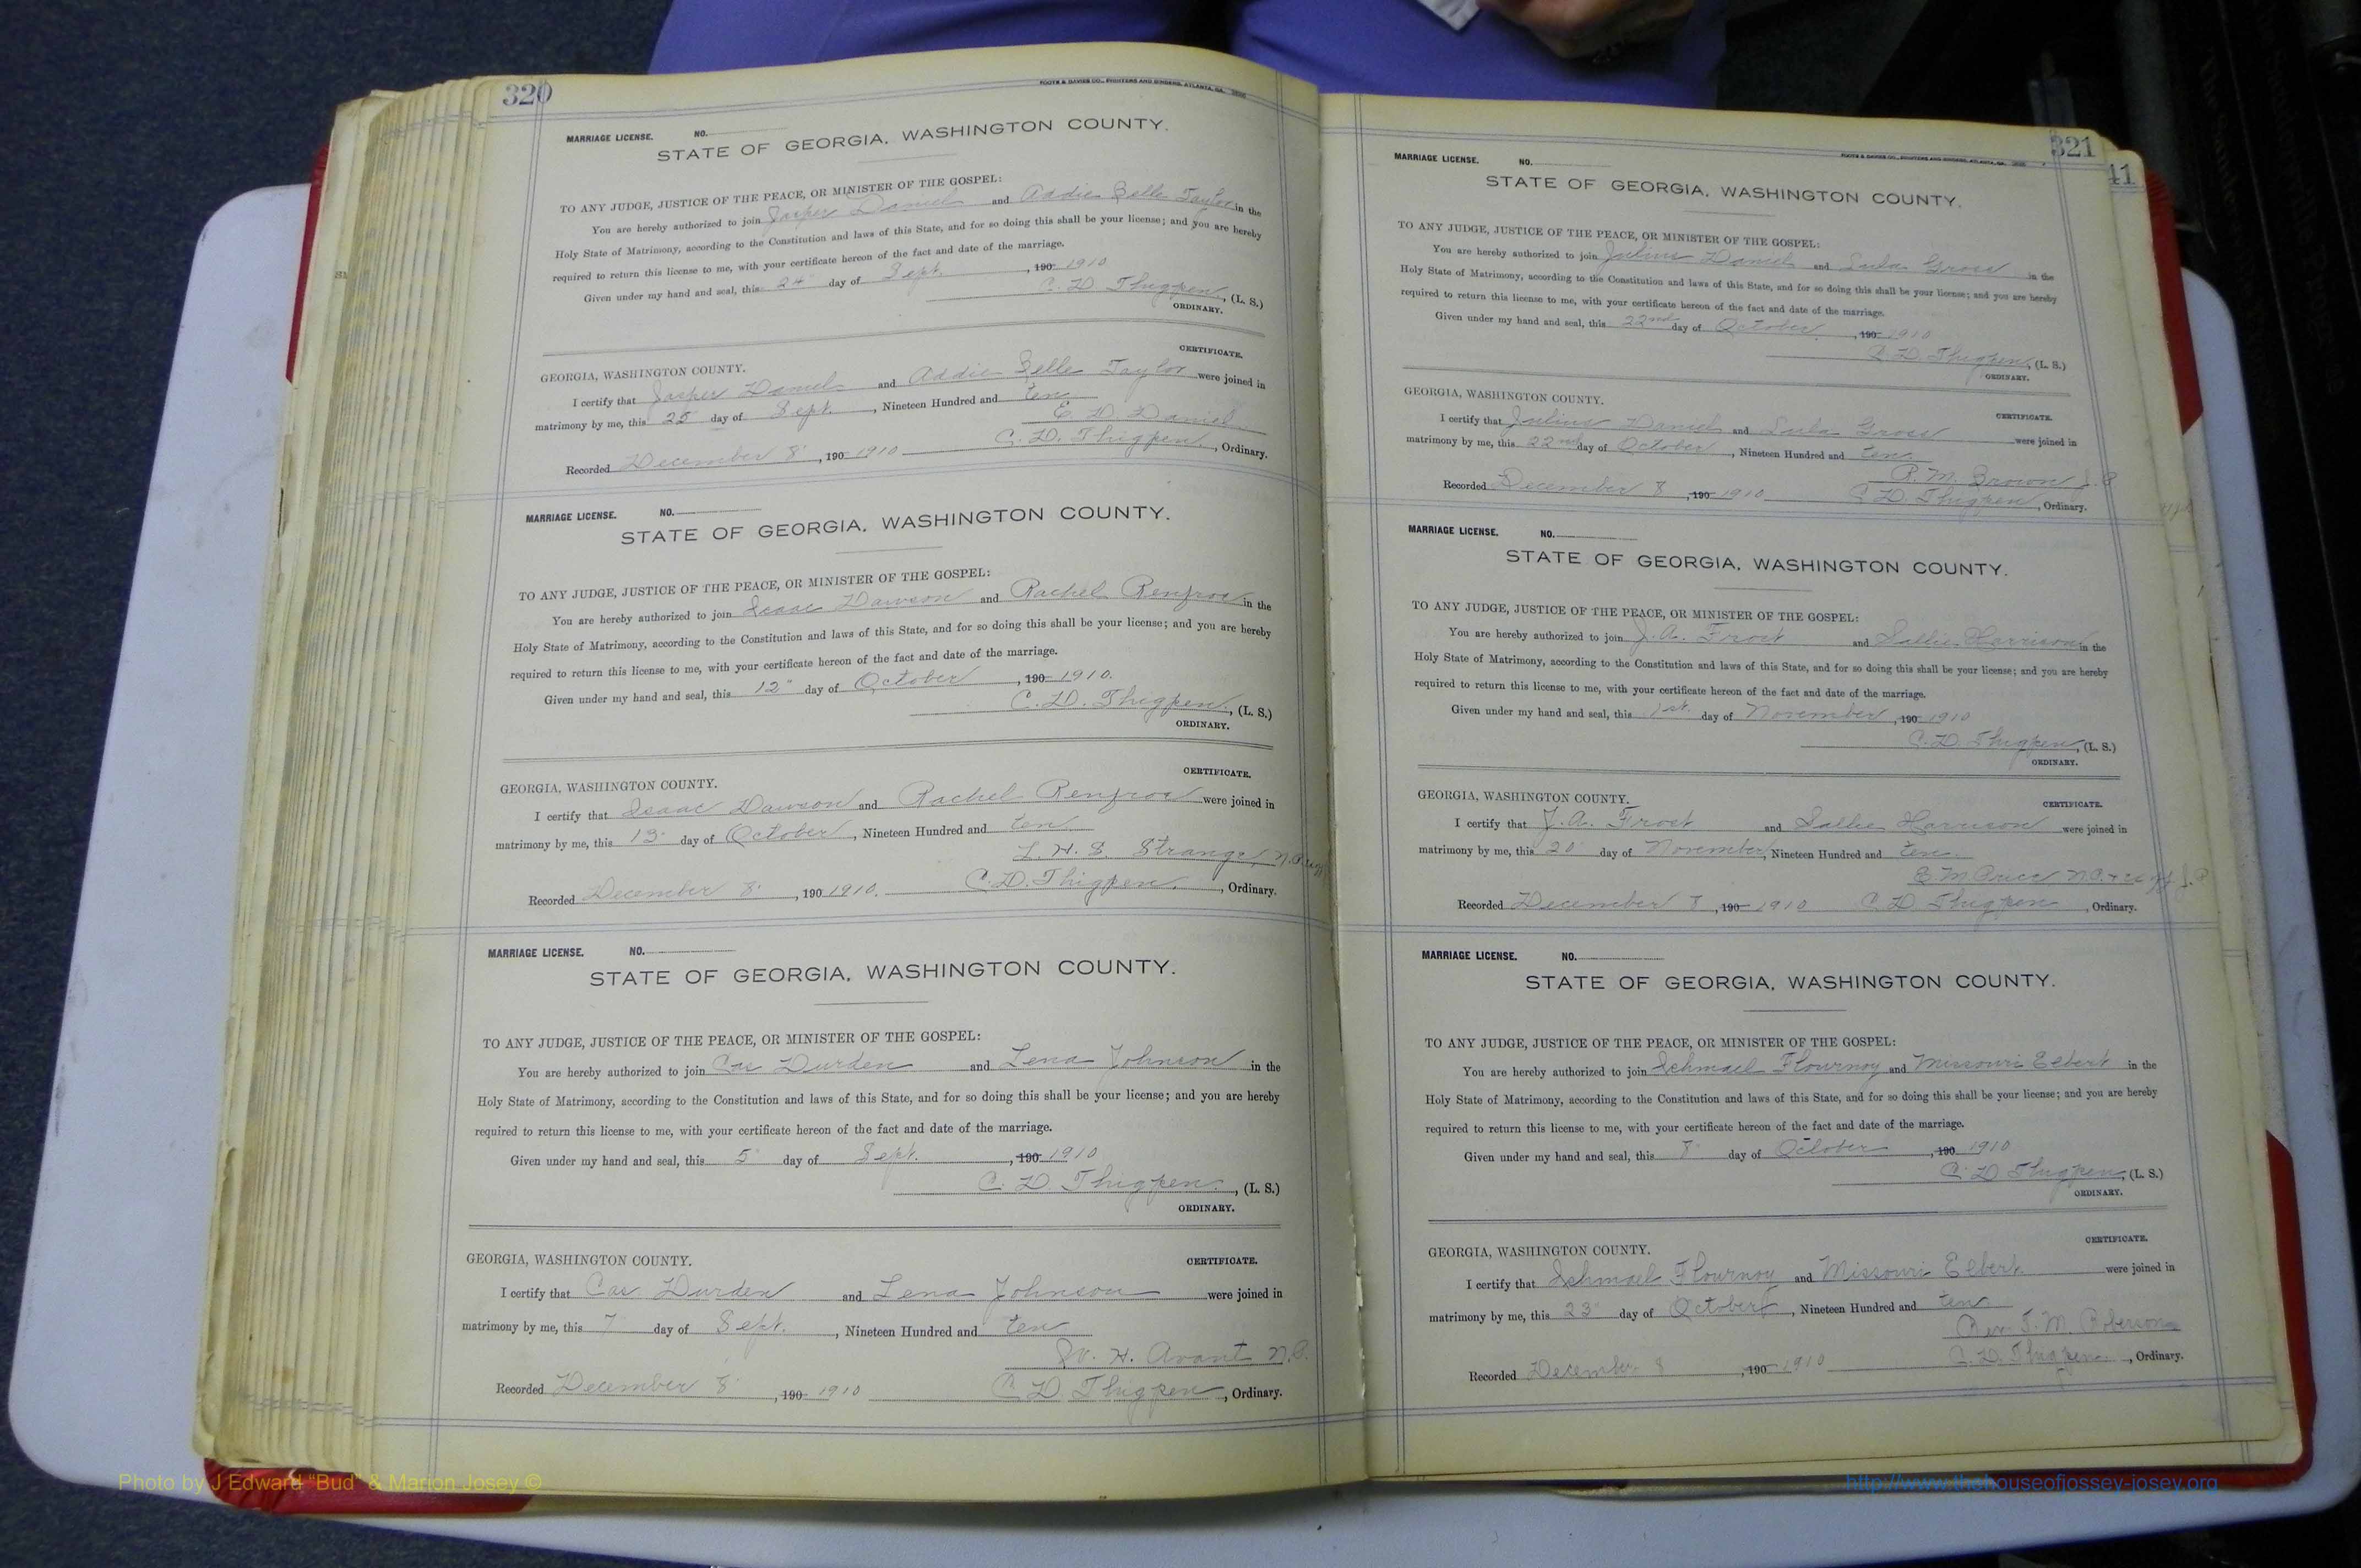 320
FOOTE & DAVIES CO., PRINTERS AND BINDERS, ATLANTA, GA.
MARRIAGE LICENSE. NO.
STATE OF GEORGIA, WASHINGTON COUNTY.
TO ANY JUDGE, JUSTICE OF THE PEACE, OR MINISTER OF THE GOSPEL:
You are hereby authorized to join Jasper Daniel and Addie Belle Taylor in the
Holy State of Matrimony, according to the Constitution and laws of this State, and for so doing this shall be your license; and you are hereby
required to return this license to me, with your certificate hereon of the fact and date of the marriage.
Given under my hand and seal, this 24" day of Sept. , 190 1910
C. D. Thigpen, (L. S.)
ORDINARY.
CERTIFICATE.
GEORGIA, WASHINGTON COUNTY.
I certify that Jasper Daniel and Addie Belle Taylor were joined in
matrimony by me, this 25 day of Sept. , Nineteen Hundred and ten
E. D. Daniel
Recorded December 8" , 190 1910 C. D. Thigpen , Ordinary.
MARRIAGE LICENSE. NO.
STATE OF GEORGIA, WASHINGTON COUNTY.
TO ANY JUDGE, JUSTICE OF THE PEACE, OR MINISTER OF THE GOSPEL:
You are hereby authorized to join Isaac Dawson and Rachel Renfroe in the
Holy State of Matrimony, according to the Constitution and laws of this State, and for so doing this shall be your license; and you are hereby
required to return this license to me, with your certificate hereon of the fact and date of the marriage.
Given under my hand and seal, this 12" day of October , 190 1910.
C. D. Thigpen. , (L. S.)
ORDINARY.
CERTIFICATE.
GEORGIA, WASHINGTON COUNTY.
I certify that Isaac Dawson and Rachel Renfroe were joined in
matrimony by me, this 13" day of October , Nineteen Hundred and ten
L. H. S. Strange
Recorded December 8" , 190 1910. C. D. Thigpen. , Ordinary.
MARRIAGE LICENSE. NO.
STATE OF GEORGIA, WASHINGTON COUNTY.
TO ANY JUDGE, JUSTICE OF THE PEACE, OR MINISTER OF THE GOSPEL:
You are hereby authorized to join Cas Durden and Lena Johnson in the
Holy State of Matrimony, according to the Constitution and laws of this State, and for so doing this shall be your license; and you are hereby
required to return this license to me, with your certificate hereon of the fact and date of the marriage.
Given under my hand and seal, this 5" day of Sept. , 190 1910
C. D Thigpen. , (L. S.)
ORDINARY.
CERTIFICATE.
GEORGIA, WASHINGTON COUNTY.
I certify that Cas Durden and Lena Johnson were joined in
matrimony by me, this 7" day of Sept. , Nineteen Hundred and ten
H. Avant N.P.
Recorded December 8" , 190 1910 C. D. Thigpen , Ordinary.
321
41
FOOTE & DAVIES CO., PRINTERS AND BINDERS, ATLANTA, GA.
MARRIAGE LICENSE. NO.
STATE OF GEORGIA, WASHINGTON COUNTY.
TO ANY JUDGE, JUSTICE OF THE PEACE, OR MINISTER OF THE GOSPEL:
You are hereby authorized to join Julius Daniel and Lula Gross in the
Holy State of Matrimony, according to the Constitution and laws of this State, and for so doing this shall be your license; and you are hereby
required to return this license to me, with your certificate hereon of the fact and date of the marriage.
Given under my hand and seal, this 22nd day of October , 190 1910
C. D. Thigpen, (L. S.)
ORDINARY.
GEORGIA, WASHINGTON COUNTY.
CERTIFICATE.
I certify that Julius Daniel and Lula Gross were joined in
matrimony by me, this 22nd day of October , Nineteen Hundred and ten.
R. M. Brown J. P
Recorded December 8 , 190 1910 C. D. Thigpen , Ordinary.
MARRIAGE LICENSE. NO.
STATE OF GEORGIA, WASHINGTON COUNTY.
TO ANY JUDGE, JUSTICE OF THE PEACE, OR MINISTER OF THE GOSPEL:
You are hereby authorized to join J. A. Frost and Sallie Harrison in the
Holy State of Matrimony, according to the Constitution and laws of this State, and for so doing this shall be your license; and you are hereby
required to return this license to me, with your certificate hereon of the fact and date of the marriage.
Given under my hand and seal, this 1st. day of November , 190 1910
C. D. Thigpen, (L. S.)
ORDINARY.
GEORGIA, WASHINGTON COUNTY.
CERTIFICATE.
I certify that J. A. Frost and Sallie Harrison were joined in
matrimony by me, this 20" day of November, Nineteen Hundred and ten.
E. M. Price N.P. & ex off. J. P
Recorded December 8 , 190 1910 C. D. Thigpen , Ordinary.
MARRIAGE LICENSE. NO.
STATE OF GEORGIA, WASHINGTON COUNTY.
TO ANY JUDGE, JUSTICE OF THE PEACE, OR MINISTER OF THE GOSPEL:
You are hereby authorized to join Ishmael Flournoy and Missouri Elbert in the
Holy State of Matrimony, according to the Constitution and laws of this State, and for so doing this shall be your license; and you are hereby
required to return this license to me, with your certificate hereon of the fact and date of the marriage.
Given under my hand and seal, this 8" day of October , 190 1910
C. D Thigpen, (L. S.)
ORDINARY.
CERTIFICATE.
GEORGIA, WASHINGTON COUNTY.
I certify that Ishmael Flournoy and Missouri Elbert were joined in
matrimony by me, this 23" day of October , Nineteen Hundred and ten
Rev. T. M. Roberson
Recorded December 8 , 190 1910 C. D. Thigpen , Ordinary.
Photo by J Edward "Bud" & Marion Josey ©
http://www.thehouseofjossey-josey.org